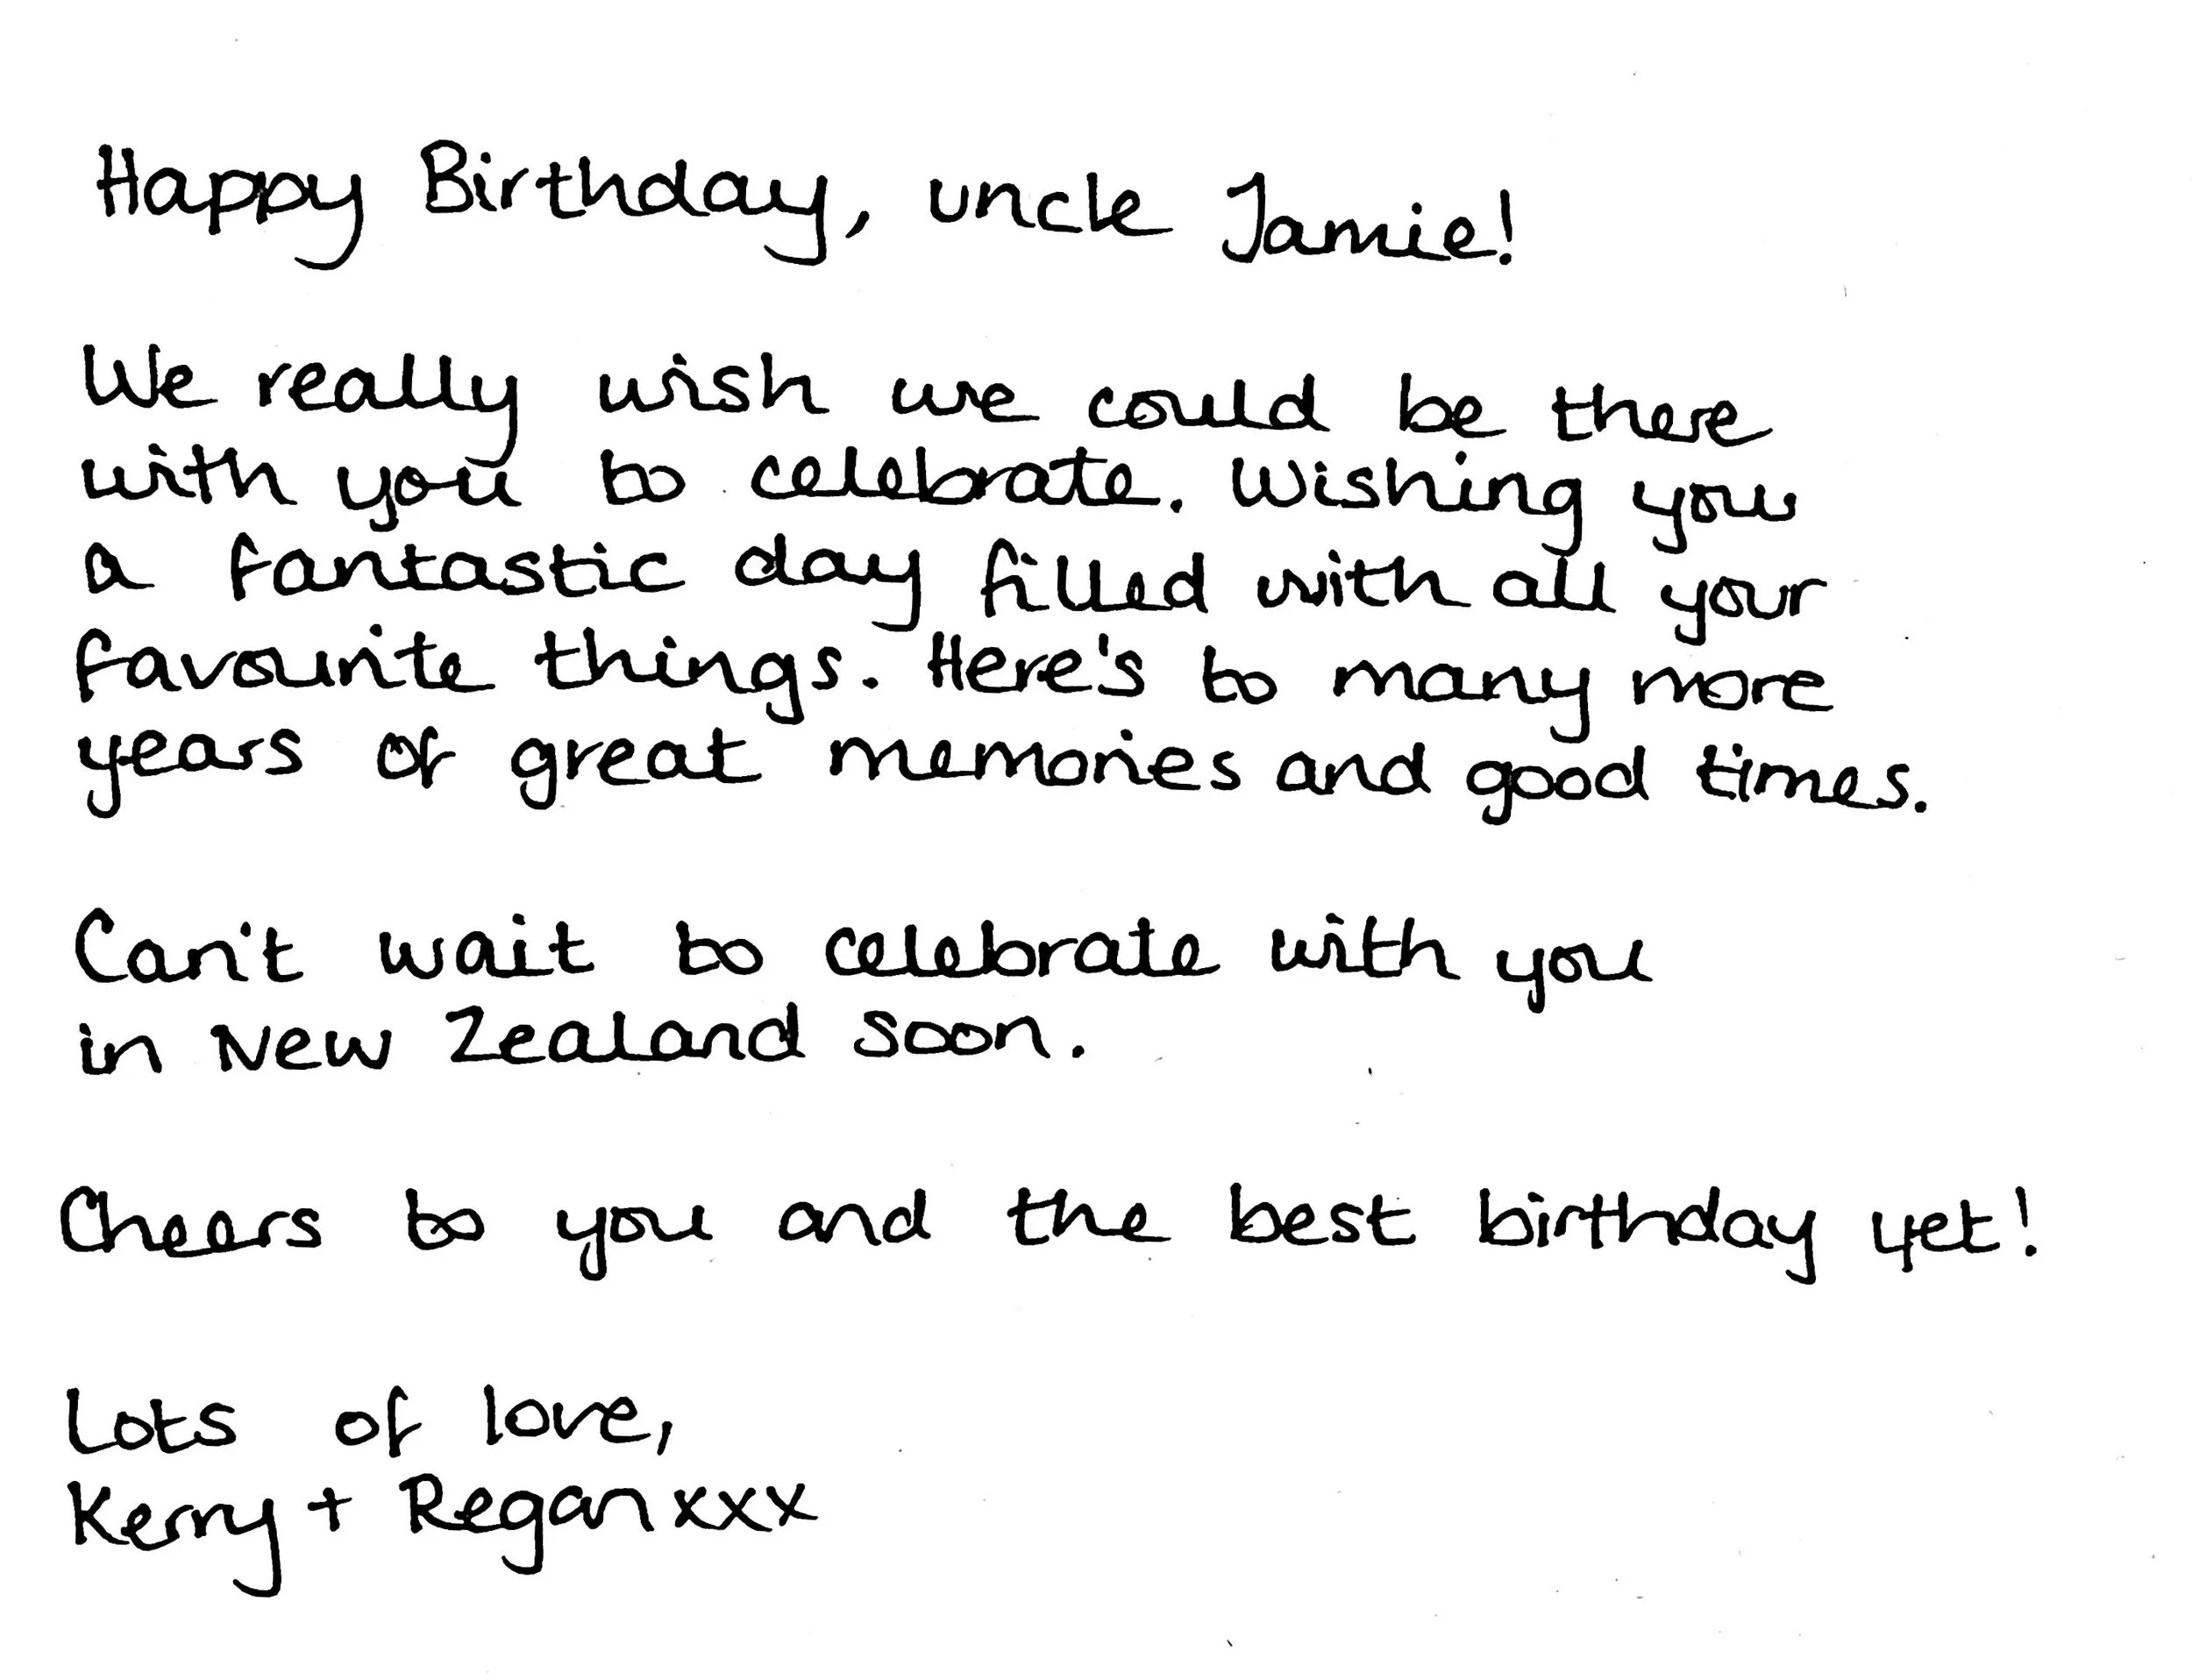 Happy Birthday, uncle Jamie!
We really wish we could be there
with you to celebrate. Wishing you
a fantastic day filled with all your
favourite things. Here's to many more
years of great memories and good times.
Can't wait to celebrate with you
in New Zealand soon.
Cheers to you and the best birthday yet!
Lots of love,
Kerry + Regan xxx